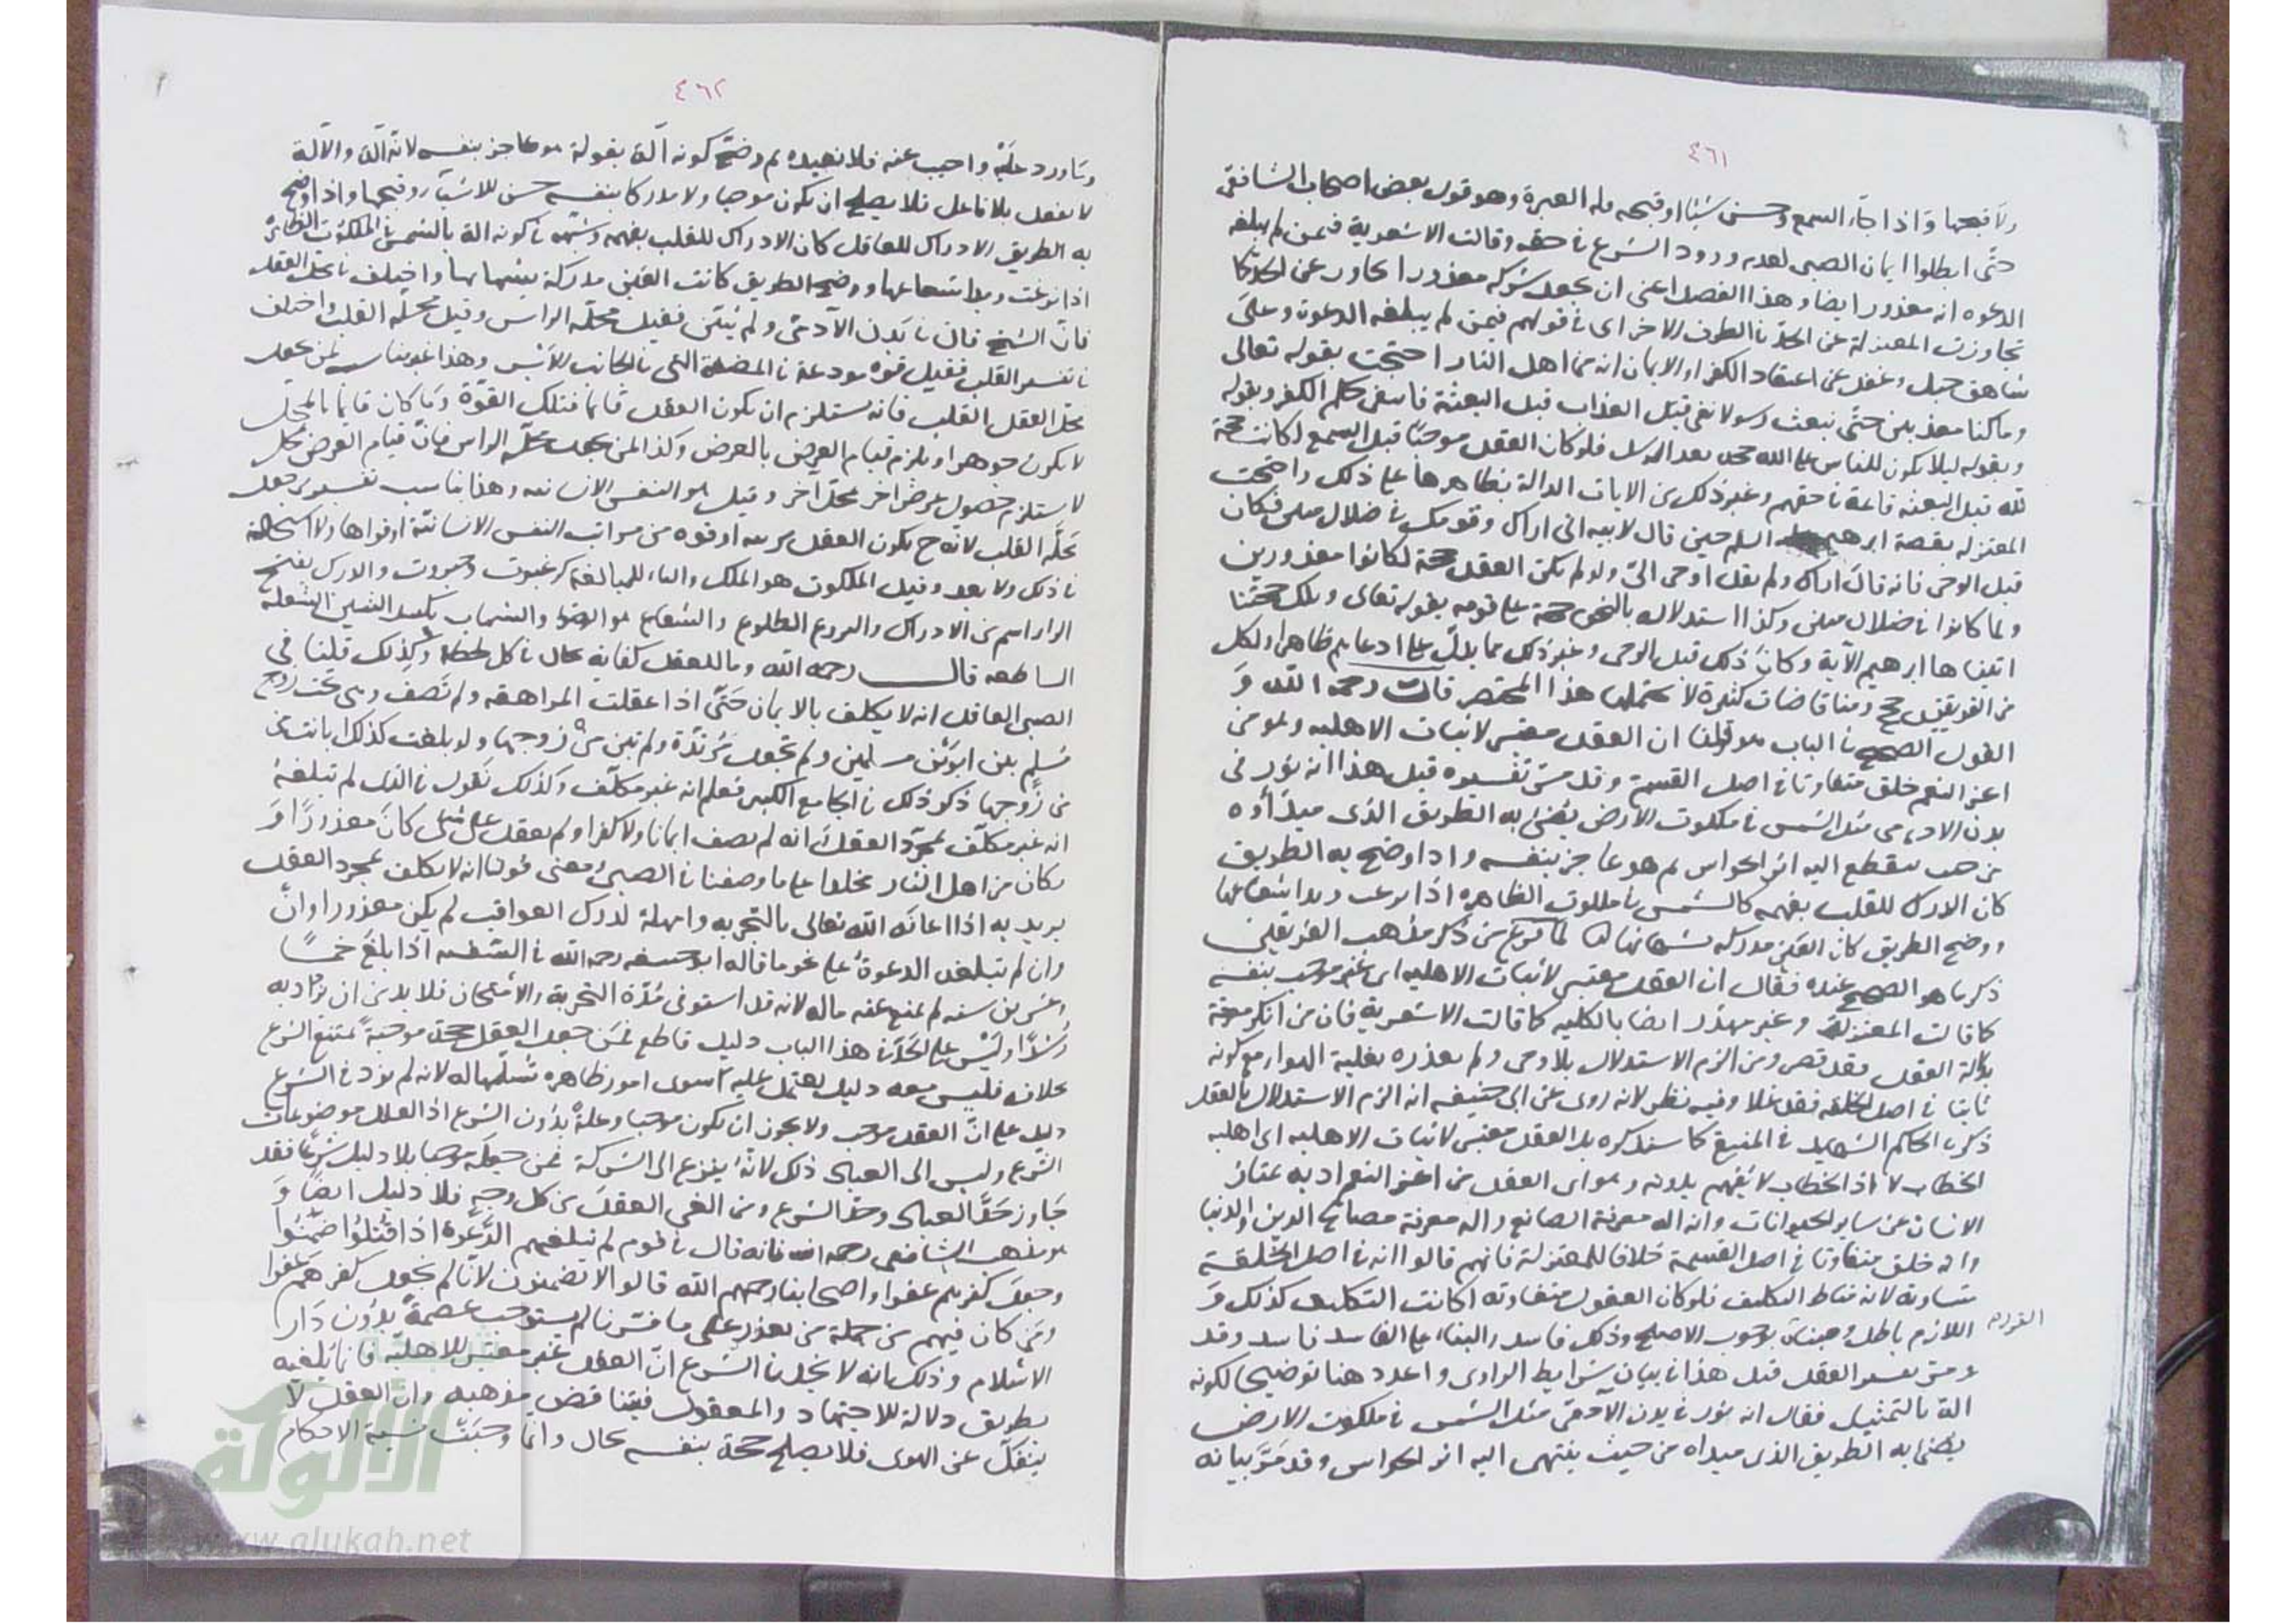 ٤٦١
ولا قبحها واذا جاء السمع وحسن شيئا او قبحه فله العبرة وهو قول بعض اصحاب الشافعي
حتى ابطلوا ايمان الصبي لعدم ورود الشرع في حقه وقالت الاشعرية فيمن لم يبلغه
الدعوه انه معذور ايضا وهذا الفصل اعني ان يجعل شركه معذورا تجاوز عن الحد كما
تجاوزت المعتزلة عن الحد في الطرف الاخر اي في قولهم فيمن لم يبلغه الدعوة وعلى
شاهق جبل وغفل عن اعتقاد الكفر او الايمان انه من اهل النار احتجت بقوله تعالى
وما كنا معذبين حتى نبعث رسولا نفى قبل العذاب قبل البعثة فانتفى حكم الكفر وبقوله
وبقوله ليلا يكون للناس على الله حجة بعد الرسل فلو كان العقل موجبا قبل السمع لكانت حجة
لله قبل البعثة قائمة في حقهم وغير ذلك من الايات الدالة بظاهرها على ذلك واحتجت
المعتزله بقصة ابرهيم السلم حين قال لابيه اني اراك وقومك في ضلال مبين فكان
قبل الوحي فانه قال اراك ولم يقل اوحي اليّ ولو لم يكن العقل حجة لكانوا معذورين
ولما كانوا في ضلال مبين وكذا استدلاله بالنجوم حجة على قومه بقوله تعالى وتلك حجتنا
اتيناها ابرهيم الاية وكان ذلك قبل الوحي وغير ذلك مما يدل على ادعايهم ظاهرا ولكل
من الفريقين حجج ومناقضات كثيرة لا يحتملها هذا المختصر قال رحمه الله و
القول الصحيح في الباب هو قولنا ان العقل معتبر لاثبات الاهليه وهو من
اعز النعم خلق متفاوتا في اصل القسمة وقد مر تفسيره قبل هذا انه نور في
بدن الادمي مثل الشمس في ملكوت الارض يضئ به الطريق الذي مبدأوه
من حيث ينقطع اليه اثر الحواس ثم هو عاجز بنفسه واذا وضح به الطريق
كان الدرك للقلب بفهمه كالشمس في الملكوت الظاهره اذا بزغت وبدا شعاعها
ووضح الطريق كان العين مدركه بشهابها لما فرغ من ذكر مذهب الفريقين
ذكر ما هو الصحيح عنده فقال ان العقل معتبر لاثبات الاهليه اي غير موجب بنفسه
كما قالت المعتزلة وغير مهدر ايضا بالكليه كما قالت الاشعرية فان من انكر معرفة
بدلالة العقل فقد قصر ومن الزم الاستدلال بلا وحي ولم يعذره بغلبة الهوا مع كونه
ثابتا في اصل الخلقه فقد غلا وفيه نظر لانه روى عن ابي حنيفه انه الزم الاستدلال بالعقل
ذكره الحاكم الشهيد في المنتقى كما سنذكره بل العقل معتبر لاثبات الاهليه اي اهليه
الخطاب لا اذ الخطاب لا يفهم بدونه وهو اي العقل من اعز النعم اذ به يمتاز
الانسان عن ساير الحيوانات وانه اله معرفة الصانع واله معرفة مصالح الدين والدنيا
وانه خلق متفاوتا في اصل القسمة خلافا للمعتزلة فانهم قالوا انه في اصل الخلقة
متساوية لانه مناط التكليف فلو كان العقول متفاوته لكانت التكليف كذلك و
اللازم باطل وجبناه بوجوب الاصلح وذلك فاسد والبناء على الفاسد فاسد وقد
ومر تفسير العقل قبل هذا في بيان شرايط الراوي واعدد هنا توضيحا لكونه
الة بالتمثيل فقال انه نور في بدن الآدمي مثل الشمس في ملكوت الارض
يضئ به الطريق الذي مبداه من حيث ينتهي اليه اثر الحواس وقد مرّ بيانه
٤٦٢
وما ورد عليه واجيب عنه فلا نعيده ثم وضح كونه آلة بقوله هو عاجز بنفسه لانه آلة والآلة
لا تفعل بلا فاعل فلا يصلح ان يكون موجبا ولا مدركا بنفسه حسن الاشياء وقبحها واذا وضح
به الطريق الادراك للعاقل كان الادراك للقلب بفهمه وشبهه في كونه الة بالشمس في الملكوت الظاهرة
اذا بزغت وبدا شعاعها ووضح الطريق كانت العين مدركة بشهابها واختلف في محل العقل
فان الشيخ قال في بدن الآدمي ولم يبين فقيل محله الراس وقيل محله القلب واختلف
في تفسير القلب فقيل قوة مودعة في المضغة التي في الجانب الايسر وهذا غير مناسب لمن يجعل
محل العقل القلب فانه يستلزم ان يكون العقل قائما بتلك القوة وما كان قايما بالمحل
لا يكون جوهرا ويلزم قيام العرض بالعرض وكذا لمن يجعل محله الراس فان قيام العرض بمحل
لا يستلزم حصول عرض اخر بمحل اخر وقيل هو النفس الانسانيه وهذا يناسب تفسير من جعل
محله القلب لانه ح يكون العقل مرتبه او قوه من مراتب النفس الانسانية او قواها ولا استحالة
في ذلك ولا بعد وقيل الملكوت هو الملك والتاء للمبالغة كرغبوت وجبروت والدرك بفتح
الراء اسم من الادراك والبزوغ الطلوع والشعاع هو الضوا والشهاب بكسر الشين الشعلة
الساطعه قال رحمه الله وما للعقل كفاية بحال في كل لحظة وكذلك قلنا في
الصبي العاقل انه لا يكلف بالايمان حتى اذا عقلت المراهقه ولم تصف وهي تحت زوج
مسلم بين ابوين مسلمين ولم تجعل مرتدة ولم تبن من زوجها ولو بلغت كذلك لبانت من
من زوجها ذكر ذلك في الجامع الكبير فعلم انه غير مكلف وكذلك نقول في الذي لم تبلغه
انه غير مكلف بمجرد العقل وانه لم يصف ايمانا ولا كفرا ولم يعقل على شئ كان معذورا و
كان من اهل النار مخلدا على ما وصفنا في الصبي ومعنى قولنا انه لا يكلف بمجرد العقل
يريد به اذا اعانه الله تعالى بالتجربه وامهله لدرك العواقب لم يكن معذورا وان
وان لم تبلغه الدعوة على نحو ما قاله ابو حنيفه رحمه الله في السفيه اذا بلغ خمسا
وعشرين سنه لم يمنع عنه ماله لانه قد استوفى مدة التجربة والامتحان فلا بد من ان يزداد به
رشدا وليس على الحد في هذا الباب دليل قاطع فمن جعل العقل حجة موجبة يمتنع الشرع
بخلافه فليس معه دليل يعتمل عليه سوى امور ظاهره نسلمها له لانه لم يرد في الشرع
دليل على ان العقل موجب ولا يجوز ان يكون موجبا وعلة بدون الشرع اذ العلل موضوعات
الشرع وليس الى العباد ذلك لانه ينزع الى الشركة فمن جعله موجبا بلا دليل شرعا فقد
جاوز حد العباد وحد الشرع ومن الغى العقل من كل وجه فلا دليل ايضا و
هو مذهب الشافعي رحمه الله فانه قال في قوم لم تبلغهم الدعوة اذا قتلوا ضمنوا
وجعل كفرهم عفوا واصحابنا رحمهم الله قالوا لا تضمنون لانا لم نجعل كفرهم عفوا
ومن كان فيهم من جملة من يعذر على ما فسرنا لم يستوجب عصمة بدون دار
الاسلام وذلك انه لا يجد في الشرع ان العقل غير معتبر للاهلية فانما يلغيه
بطريق دلالة الاجتهاد والمعقول فيتناقض مذهبه وان العقل لا
ينفك عن الهوى فلا يصلح حجة بنفسه بحال وانما وجبت نسبة الاحكام
الألوكة
www.alukah.net